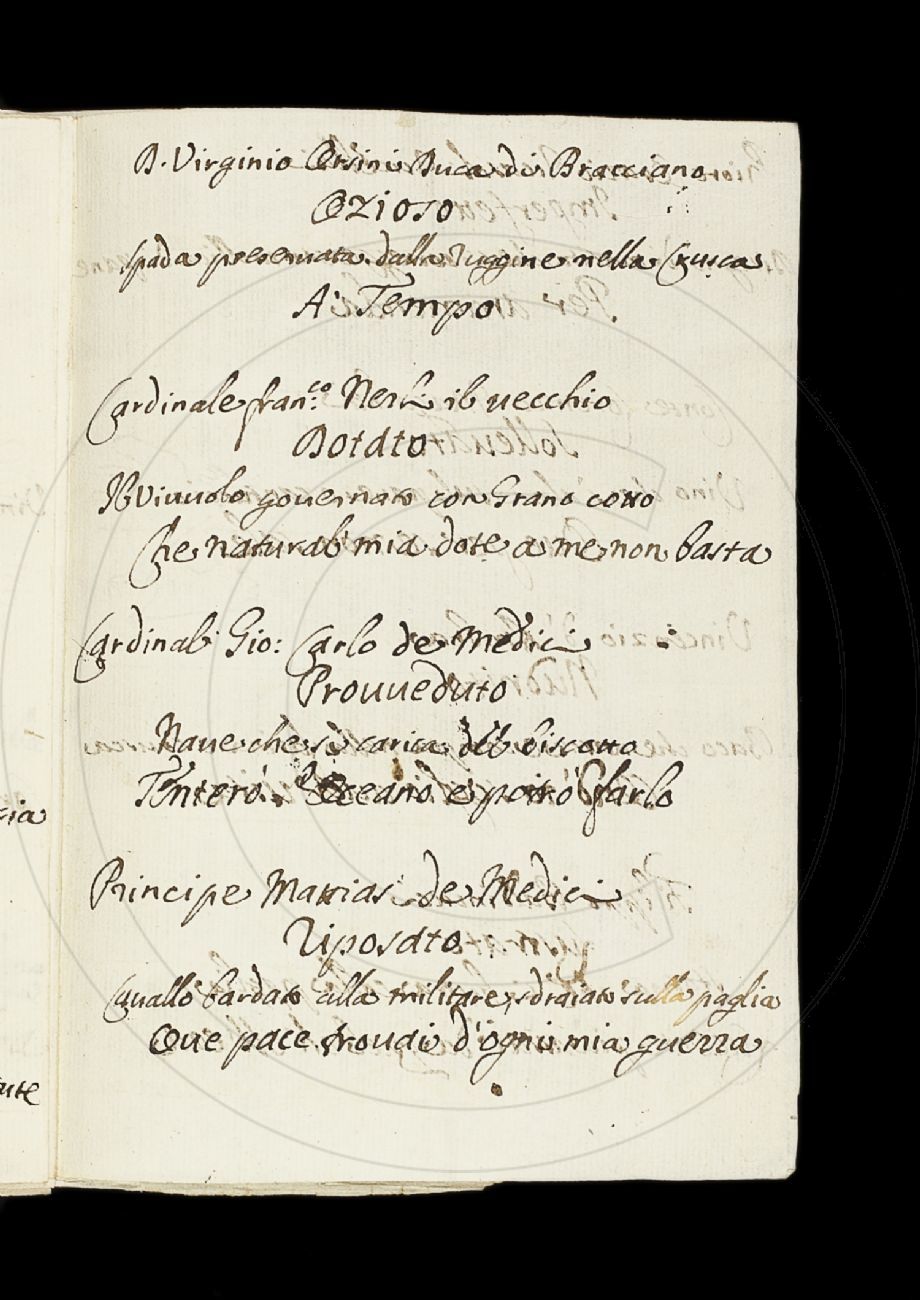 D. Virginio Orsini Duca di Bracciano
Ozioso
Spada preservata dalla Ruggine nella Crusca
A' Tempo
Cardinale Fran.co Nerli il vecchio
Dotato
Il Vivuolo governato con Grano cotto
Che natural' mia dote a me non basta
Cardinal' Gio: Carlo de Medici
Provveduto
Nave che si carica del biscotto
Tenterò l'Oceano e potrò farlo
Principe Mattias de Medici
Riposato
Cavallo bardato alla militare, sdraiato sulla paglia
Ove pace trovai d'ogni mia guerra
cia
ute